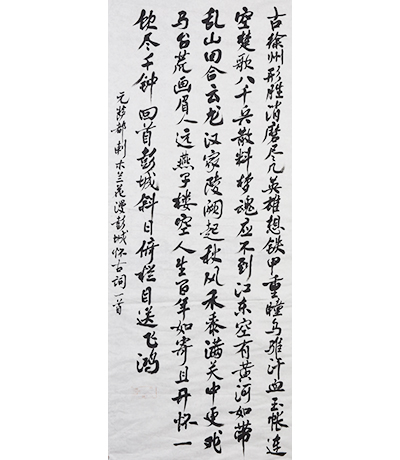 古徐州形胜消磨尽几英雄想铁甲重瞳乌骓汗血玉帐连
空楚歌八千兵散料梦魂应不到江东空有黄河如带
乱山回合云龙汉家陵阙起秋风禾黍满关中更戏
马台荒画眉人远燕子楼空人生百年如寄且开怀一
饮尽千钟 回首彭城斜日俯栏目送飞鸿
元萨都剌木兰花漫彭城怀古词一首